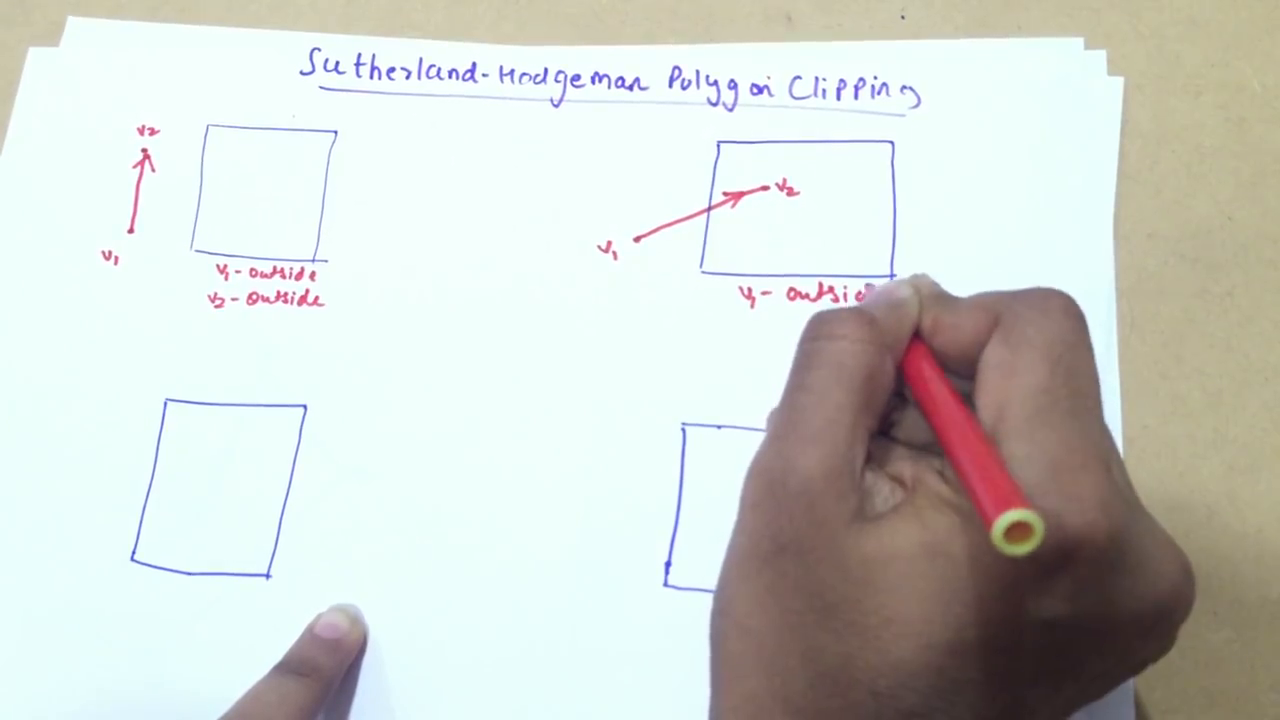 Sutherland-Hodgeman Polygon Clipping
v2
v1
v1 - outside
v2 - outside
v2
v1
v1 - outsid